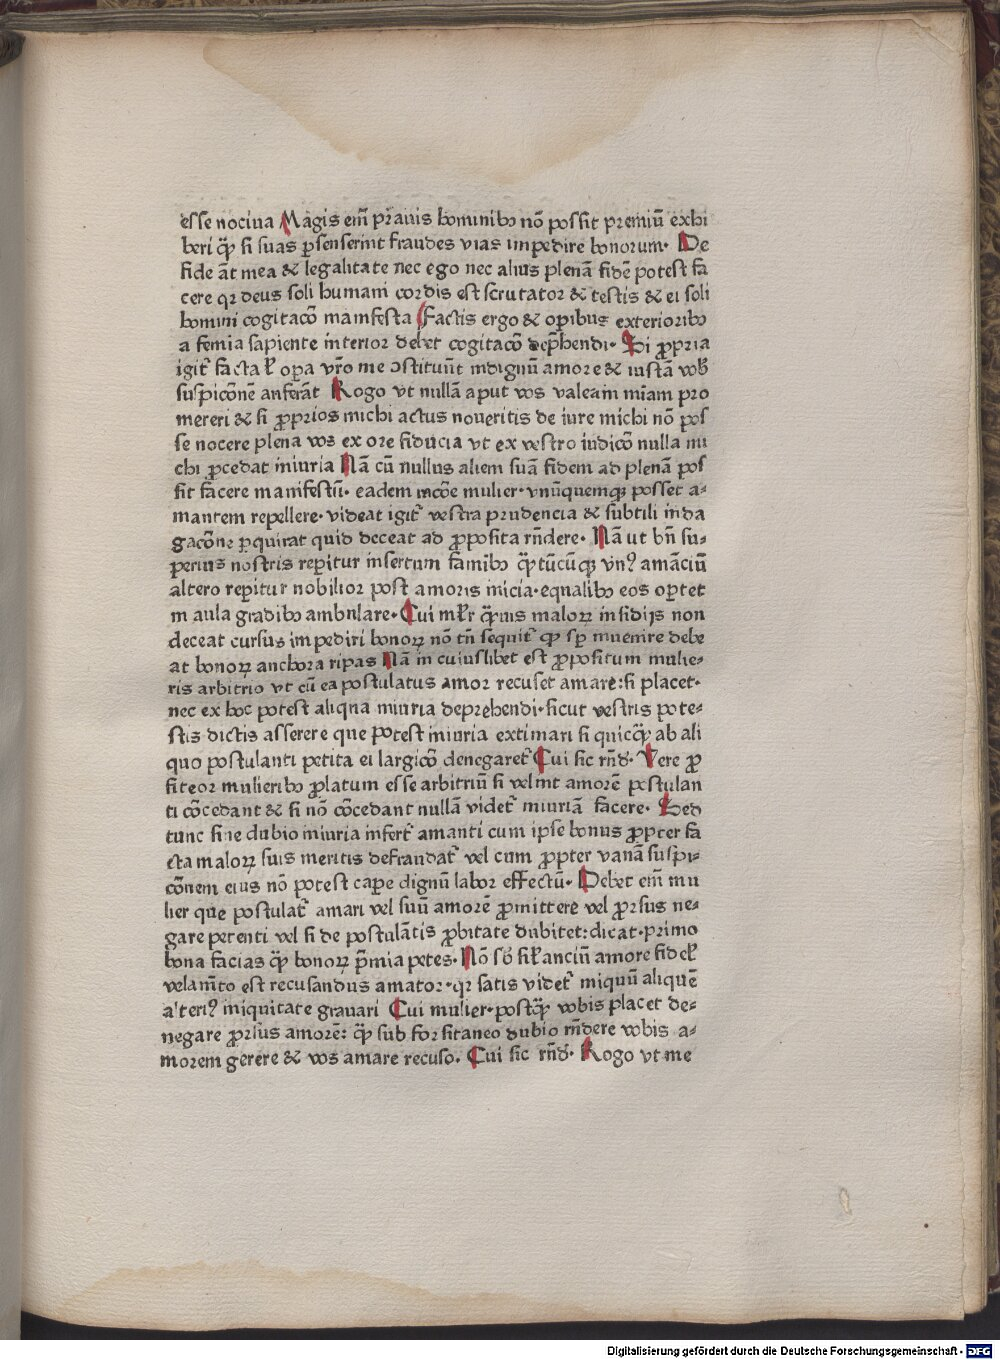 esse nociua Magis em̃ prauis hominibꝰ nõ possit premiũ exhi
beri q̃ꝫ si suas ꝑsenserint fraudes vias impedire bonorum· De
fide ãt mea & legalitate nec ego nec alius plenã fidẽ potest fa
cere qꝛ deus soli humani cordis est scrutator & testis & ei soli
homini cogitacõ manifesta Factis ergo & oꝑibus exterioribꝰ
a femia sapiente interior debet cogitacõ dep̃hendi· Si ꝓpria
igit᷑ facta ł oꝑa vr̃o me ↄstituũt indignũ amore & iustã vob̃
suspicõnẽ auferãt Rogo vt nullã aput vos valeam iniam pro
mereri & si ꝓprios michi actus noueritis de iure michi nõ pos
se nocere plena vos ex ore fiducia vt ex vestro iudicõ nulla mi
chi ꝓcedat iniuria Nã cũ nullus aliem suã fidem ad plenã pos
sit facere manifestũ· eadem racõe mulier· vnũquemqꝫ posset a-
mantem repellere· videat igit᷑ vestra prudencia & subtili inda
gacõne ꝑquirat quid deceat ad ꝓposita rñdere· Nã ut bñ su-
perius nostris reꝑitur insertum famĩbꝰ q̃ꝫtũcũqꝫ vn᷒ amãciũ
altero reꝑitur nobilior post amoris inicia· equalibꝰ eos oꝑtet
in aula gradibꝰ ambulare· Cui mlr̃ q̃ꝫuis maloꝝ insidijs non
deceat cursus impediri bonoꝝ nõ tñ sequit᷑ qꝫ sꝑ inuenire debe
at bonoꝝ anchora ripas Nã in cuiuslibet est ꝓpositum mulie-
ris arbitrio vt cũ ea postulatus amor recuset amare: si placet·
nec ex hoc potest aliqua iniuria deprehendi· sicut vestris pote-
stis dictis asserere que potest iniuria extimari si quicq̃ꝫ ab ali
quo postulanti petita ei largicõ denegaret᷑ Cui sic rñd̃· Vere ꝓ
fiteor mulieribꝰ ꝓlatum esse arbitriũ si velint amorẽ postulan
ti cõcedant & si nõ cõcedant nullã videt᷑ iniuriã facere· Sed
tunc sine dubio iniuria infert᷑ amanti cum ipse bonus ꝓpter fa
cta maloꝝ suis meritis defraudat᷑ vel cum ꝓpter vanã suspi-
cõnem eius nõ potest caꝑe dignũ labor effectũ· Debet em̃ mu
lier que postulat᷑ amari vel suũ amorẽ ꝓmittere vel ꝓrsus ne-
gare petenti vel si de postulãtis ꝓbitate dubitet: dicat· primo
bona facias q̃ꝫ bonoꝝ p̃mia petes· Nõ sꝫ sił anciũ amore fideł
velam̃to est recusandus amator· qꝛ satis videt᷑ iniquũ aliquẽ
alteri᷒ iniquitate grauari Cui mulier· postq̃ꝫ vobis placet de-
negare ꝓrsus amorẽ: q̃ꝫ sub forsitaneo dubio rñdere vobis a-
morem gerere & vos amare recuso· Cui sic rñd̃· Rogo vt me
Digitalisierung gefördert durch die Deutsche Forschungsgemeinschaft - DFG